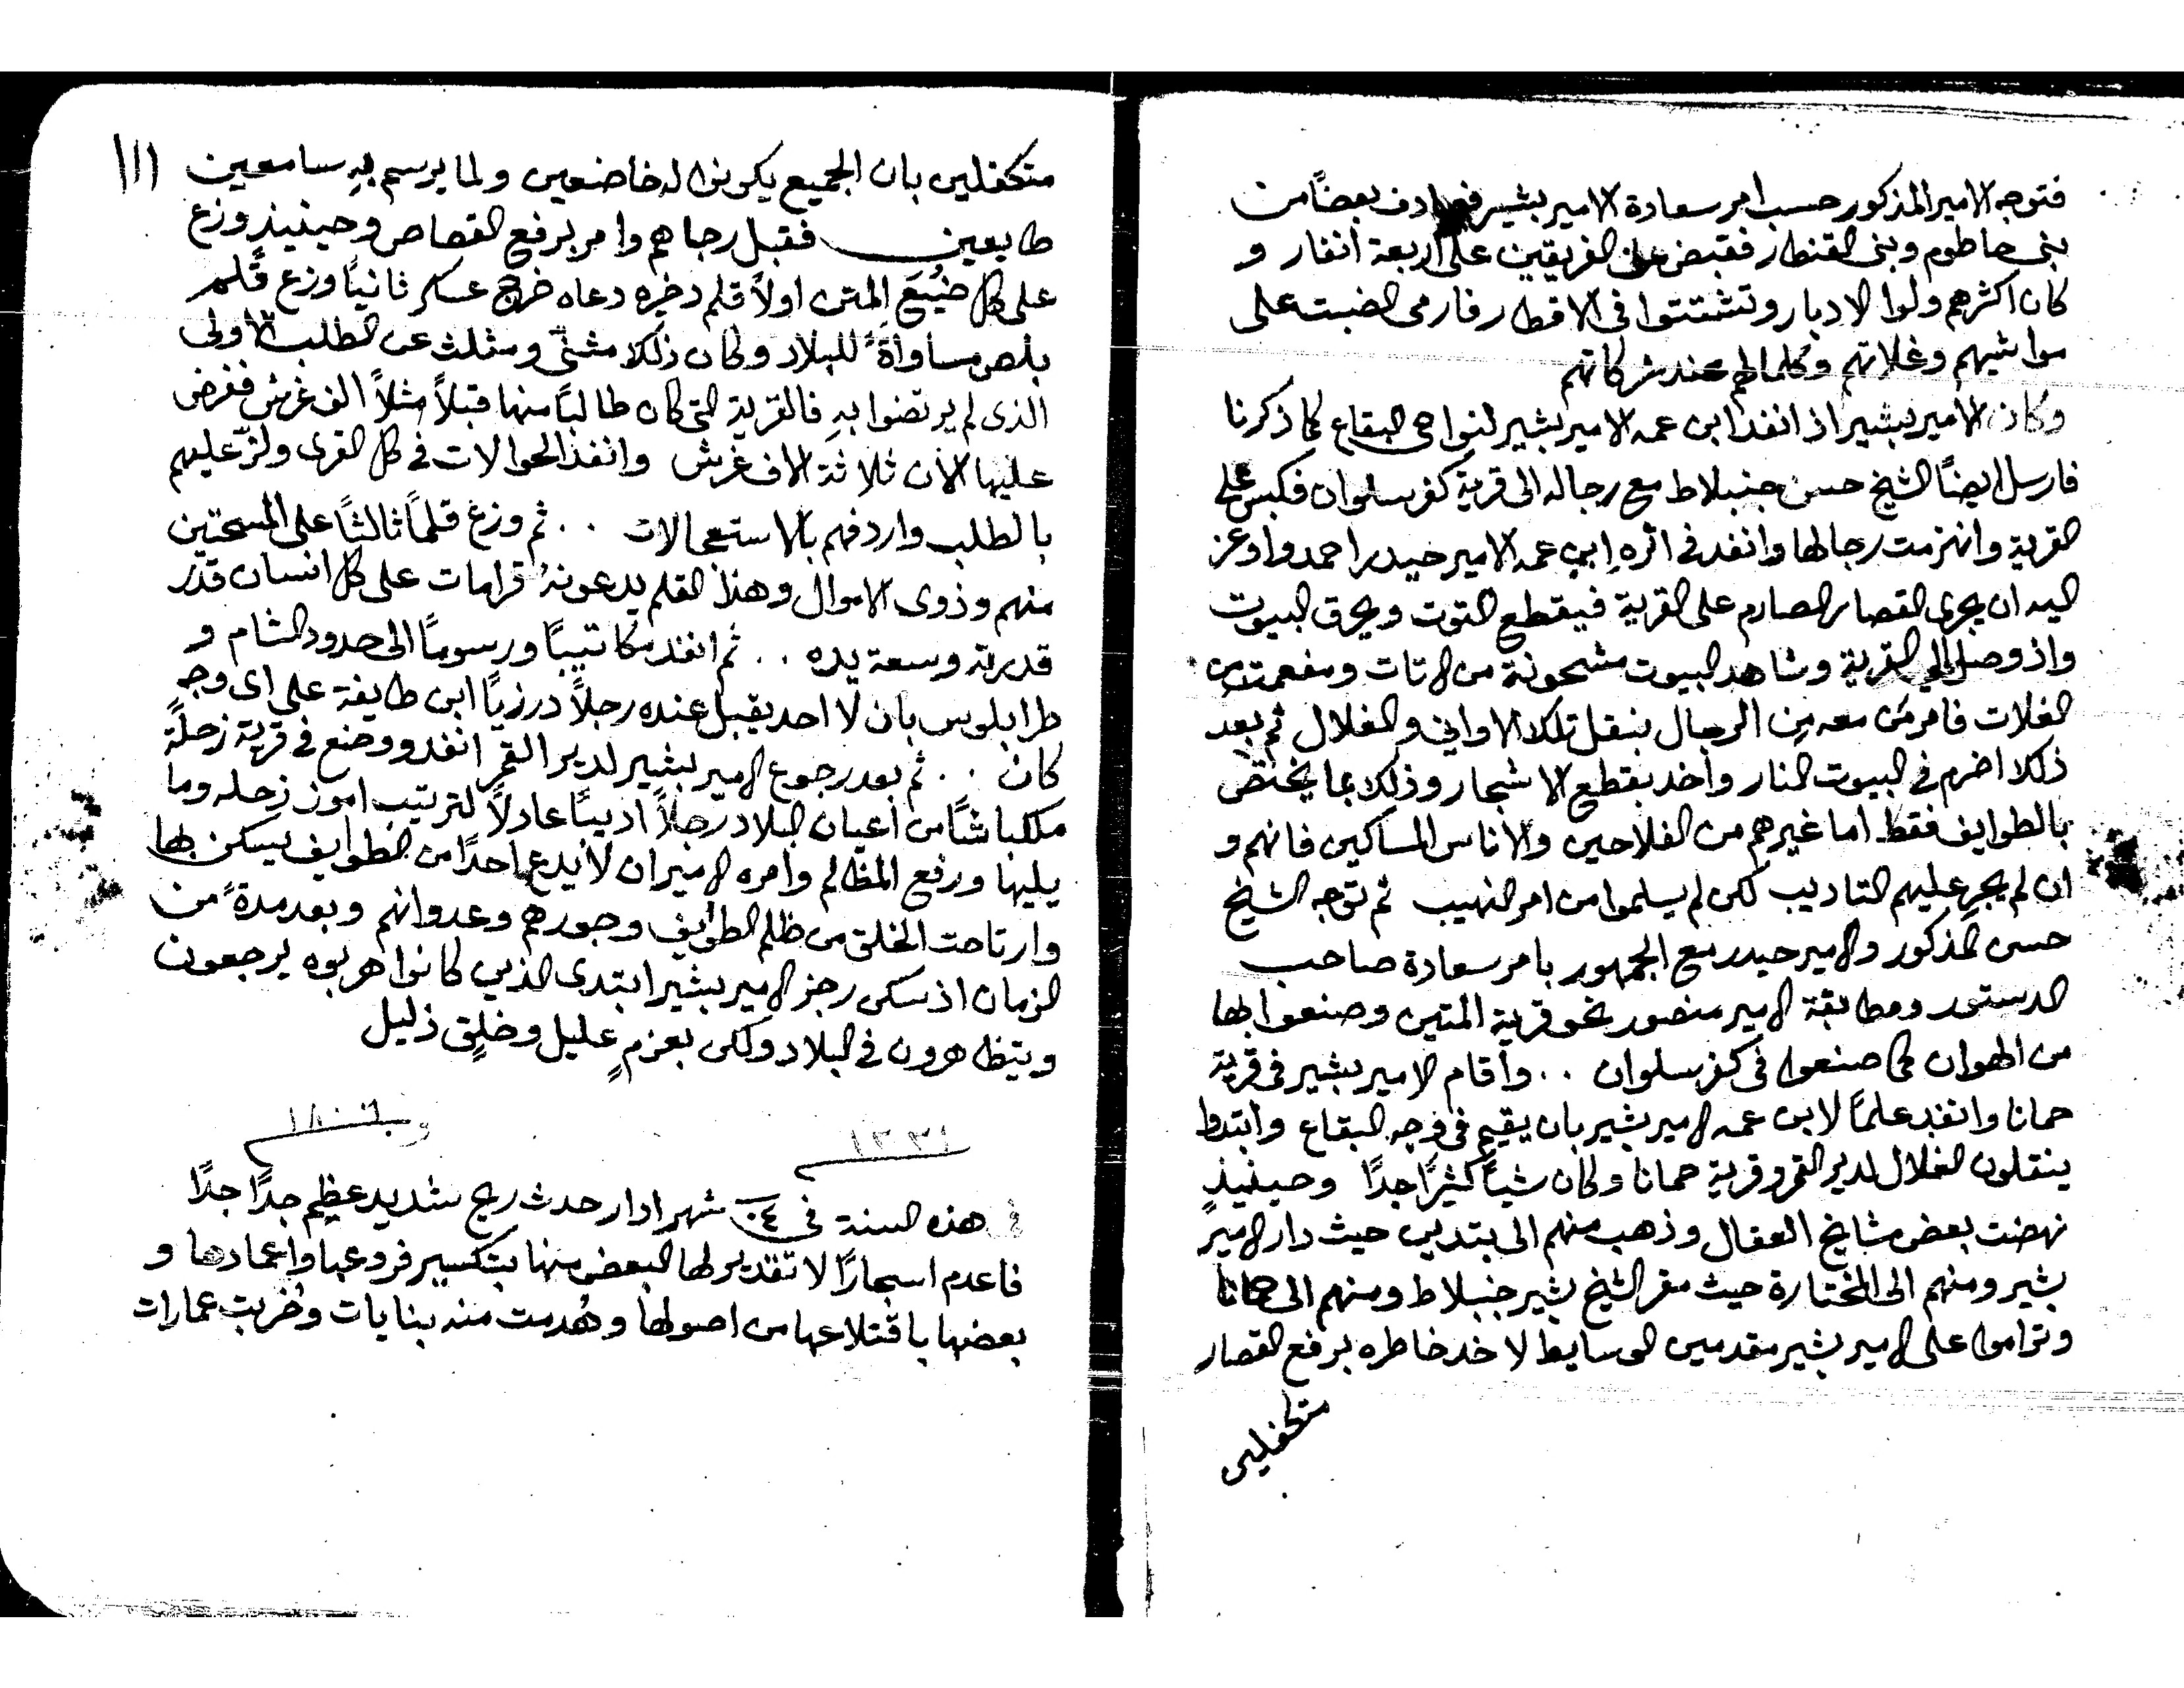 فتوجه الامير المذكور حسب امر سعادة الامير بشير فصادف بعضًا من
بنى حاطوم وبنى القنطار فقبض من الفريقين على اربعة انفار و
كان اكثرهم ولوا الادبار وتشتتوا فى الاقطار فارمى الضبت على
مواشيهم وغلاتهم وكلما لهم عند شركاتهم
وكان الامير بشير اذ انفذ ابن عمه الامير بشير لنواحى البقاع كما ذكرنا
فارسل ايضًا الشيخ حسن جنبلاط مع رجاله الى قرية كفرسلوان فكبس على
القرية وانهزمت رجالها وانفد فى اثرهِ ابن عمه الامير حيدر احمد واوعز
اليه ان يجرى القصار الصارم على القرية فيقطع التوت ويحرق البيوت
واذ وصل الى القرية وشاهد البيوت مشحونة من الاتات ومفعمة من
الغلات فامر مَن معه مِن الرجال بنقل تلك الاوانى والغلال ثم بعد
ذلك اضرم فى البيوت النار واخد بقطع الاشجار وذلك بما يختص
بالطوايف فقط اما غيرهم من الفلاحين والاناس المساكين فانهم و
ان لم يجرِ عليهم التاديب لكن لم يسلموا من امر النهيب ثم توجه الشيخ
حسن المذكور والامير حيدر مع الجمهور بامر سعادة صاحب
الدستور ومطابقة الامير منصور نحو قرية المتين وصنعوا بها
من الهوان كما صنعوا فى كفرسلوان .. واقام الامير بشير فى قرية
حمانا وانفد علمًا لابن عمه الامير بشير بان يقيم فى وجه البقاع وابتدوا
ينقلون الغلال لدير القمر وقرية حمانا وكان شيئًا كثيرًا جدًا وحينيذٍ
نهضت بعض مشايخ العقال وذهب منهم الى بتدين حيث دار الامير
بشير ومنهم الى المختارة حيث مقر الشيخ بشير جنبلاط ومنهم الى حمانا
وترامو على الامير بشير مقدمين الوسايط لاخد خاطره برفع القصار
متكفلين
١١١
متكفلين بان الجميع يكونوا له خاضعين ولما يرسم بهِ سامعين
طايعين فقبل رجاهم وامر برفع القصاص وحينيذٍ وزع
على كل ضيَع المتن اولاً قلم دخره دعاه خرج عسكر ثانيًا وزع قلم
بلص مساواةً للبلاد وكان ذلك مثنّى ومثلث عن الطلب الاولى
الذى لم يرتضوا بهِ فالقرية التى كان طالبًا منها قبلاً مثلاً الف غرش ففرض
عليها الان ثلاثة الاف غرش وانفذ الحوالات فى كل القرى ولزّ عليهم
بالطلب واردفهم بالاستعجالات .. ثم وزع قلمًا ثالثًا على المسختين
منهم وذوى الاموال وهذا القلم يدعونهُ قرامات على كل انسان قدر
قدرته وسعة يده .. ثم انفد مكاتيبًا ورسومًا الى حدود الشام و
طرابلوس بان لا احد يقبل عنده رجلاً درزيًا ابن طايفة على اى وجه
كان .. ثم بعد رجوع الامير بشير لدير القمر انفد ووضع فى قرية زحلة
ملكباشًا من اعيان البلاد رجلاً اديبًا عادلاً لترتيب امور زحله وما
يليها ورفع المظالم وامره الامير ان لا يدع احدًا من الطوايف يسكن بها
وارتاحت الخلق من ظلم الطوايف وجورهم وعدوانهم وبعد مدةً من
الزمان اذ سكن رجز الامير بشير ابتدى الذين كانوا هربوه يرجعون
ويتظاهرون فى البلاد ولكن بعزمٍ عليل وخلقٍ ذليل
هذه السنة فى ٢٤ شهر ادار حدث ريح شديد عظيم جدًا جدًا
فاعدم اسجارًا لا تقدير لها البعض منها بتكسير فروعها واعمادها و
بعضها باقتلاعها من اصولها وهُدمت منه بنايات وخربت عمارات